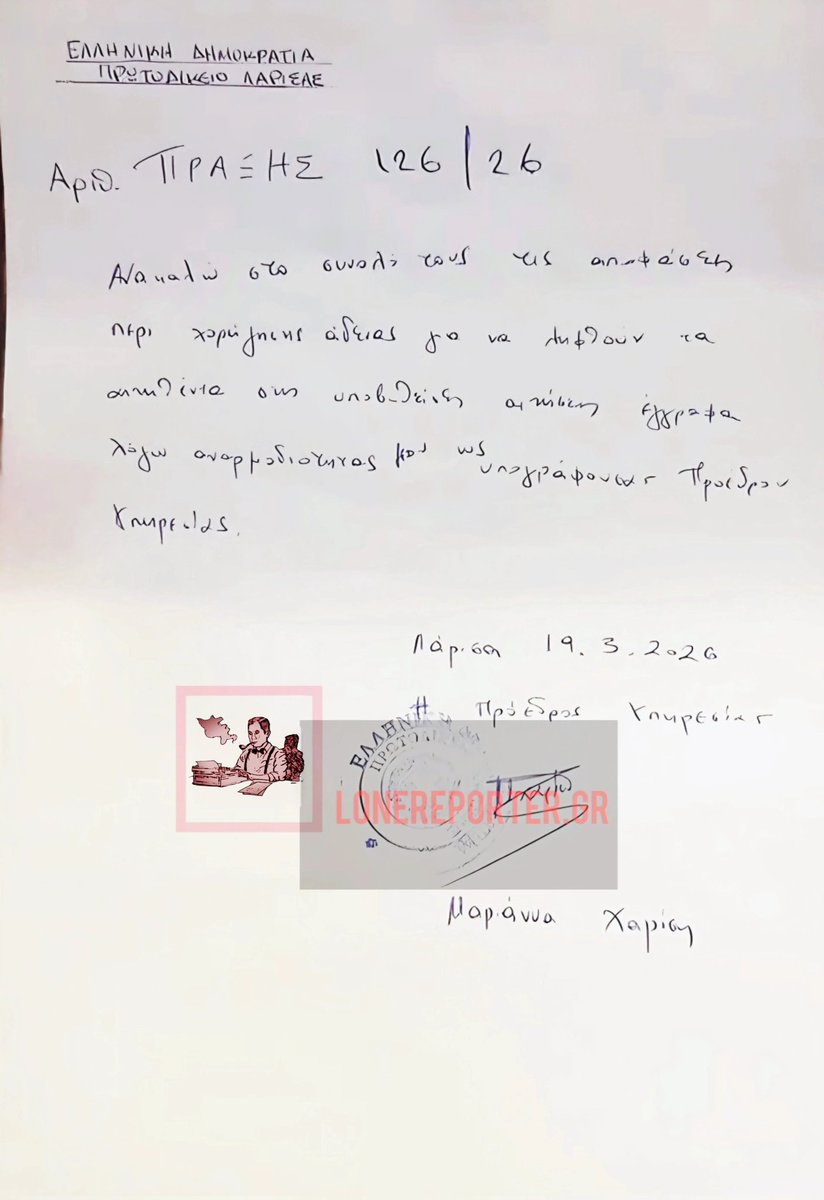 ΕΛΛΗΝΙΚΗ ΔΗΜΟΚΡΑΤΙΑ
ΠΡΩΤΟΔΙΚΕΙΟ ΛΑΡΙΣΑΣ
Αριθ. ΠΡΑΞΗΣ 126/26
Ανακαλώ στο συνολό τους τις αποφάσεις
περι χορήγησης άδειας για να ληφθούν τα
αιτηθέντα στις υποβληθείσες αιτήσεις έγγραφα
λόγω αναρμοδιότητας μου ως υπογράφουσας Προέδρου
Υπηρεσίας.
Λάρισα 19.3.2026
Η Πρόεδρος Υπηρεσίας
ΕΛΛΗΝΙΚ
ΠΡΩΤΟΔΙΚ
LONEREPORTER.GR
Μαριάννα Χαρίση